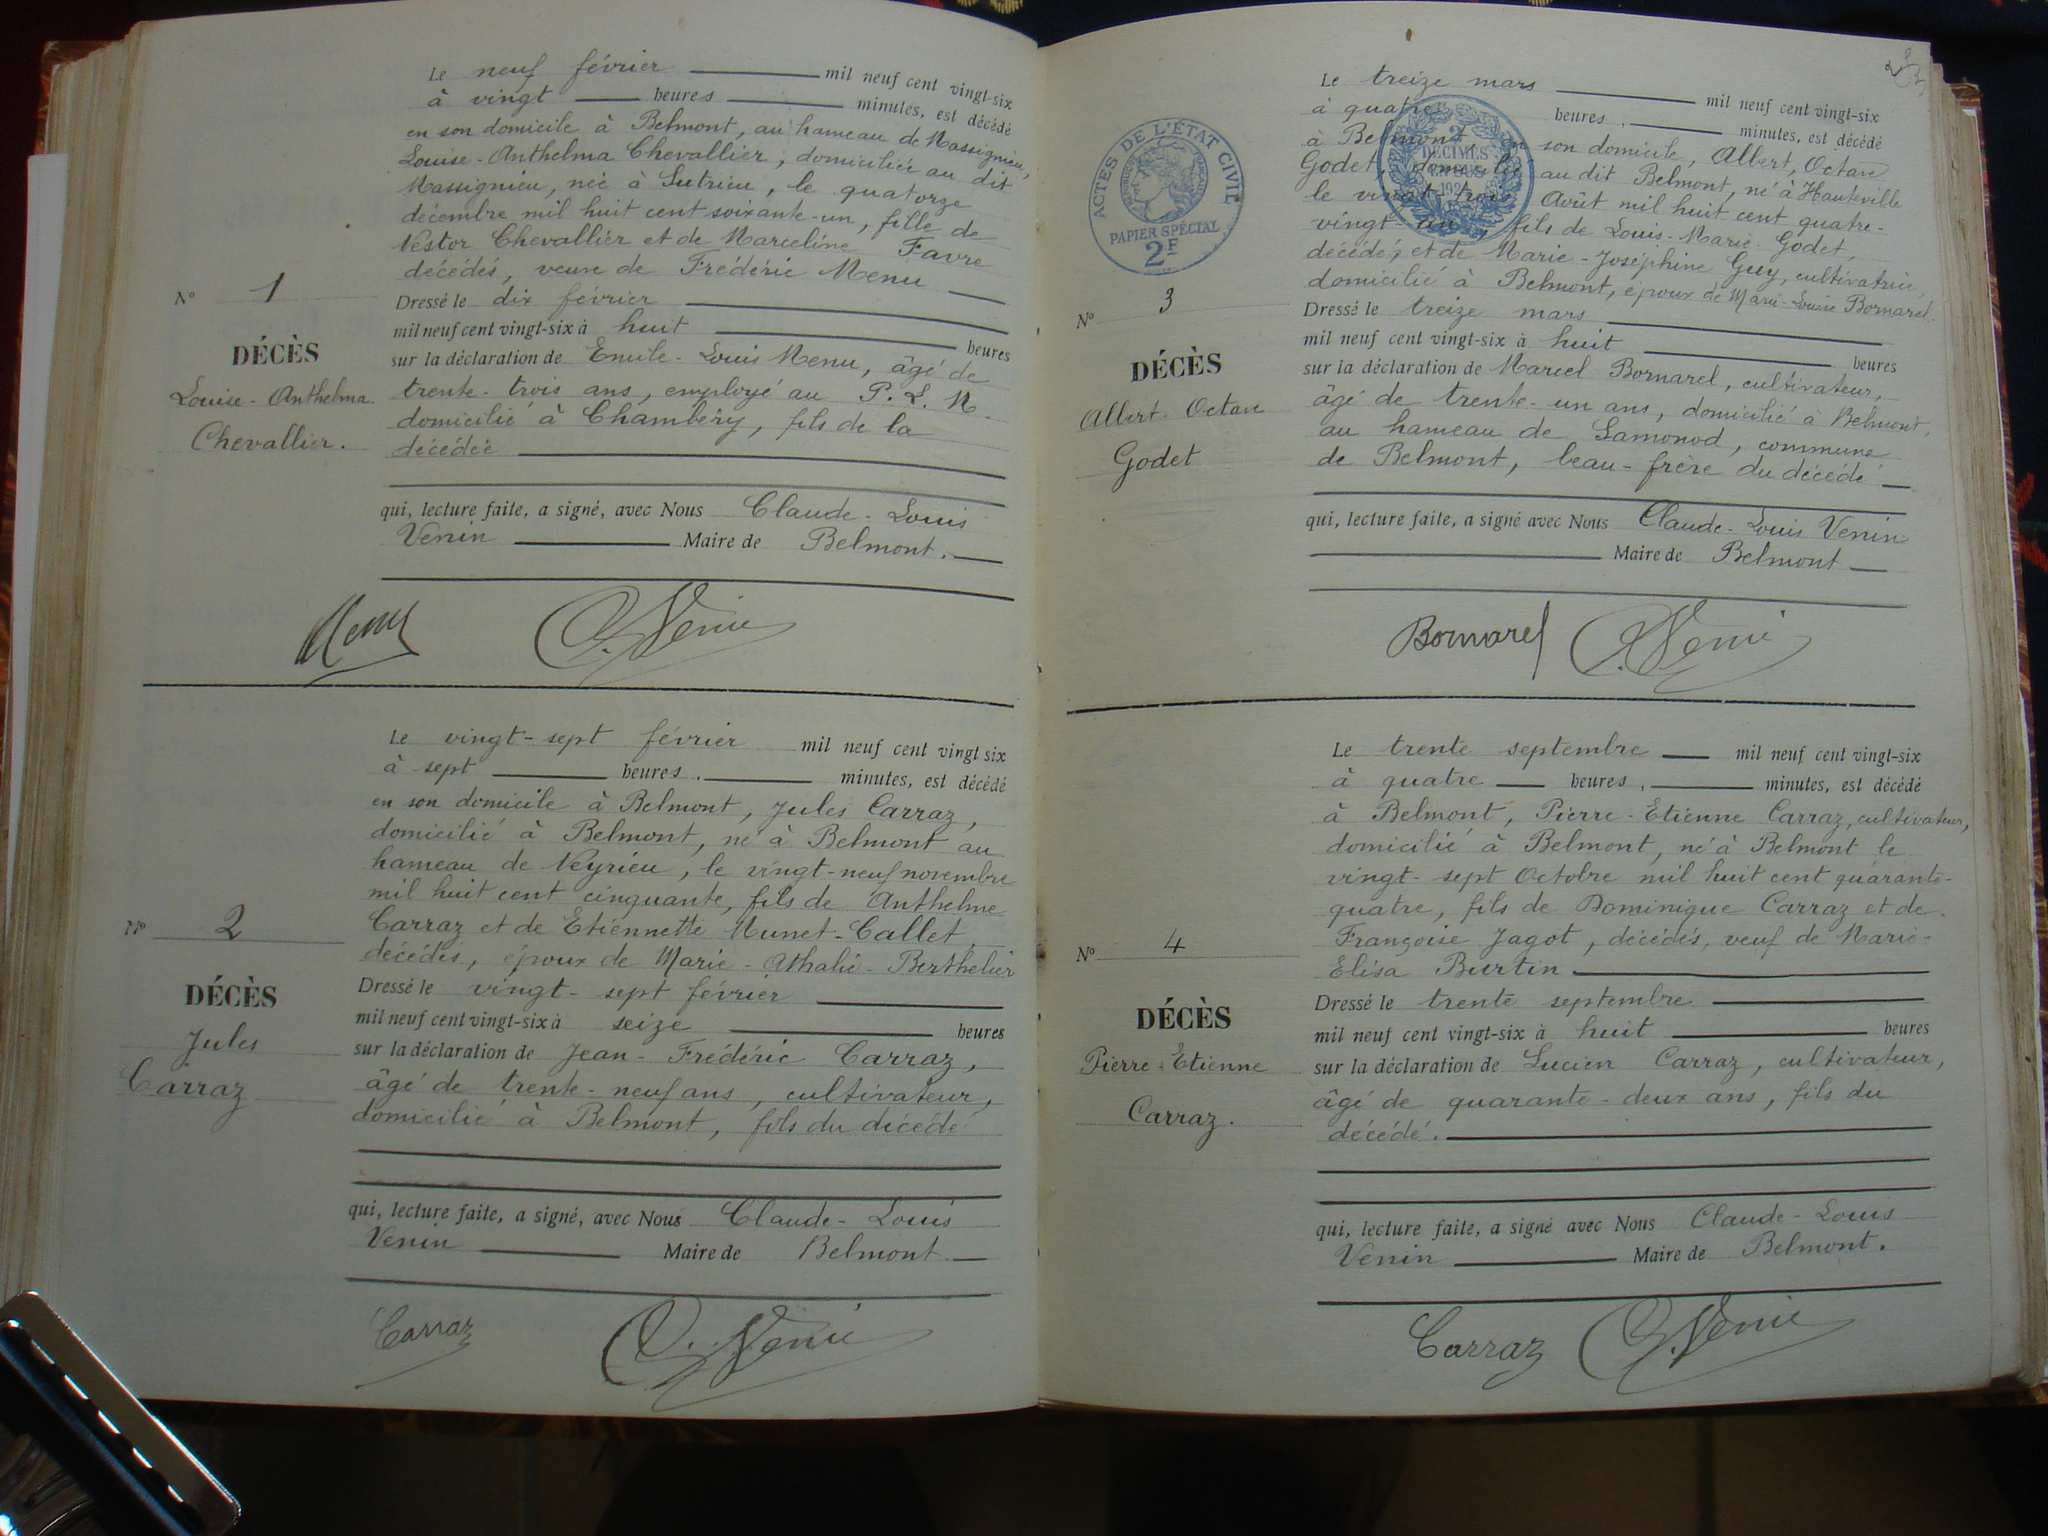 Le neuf février mil neuf cent vingt-six
à vingt heures minutes, est décédé
en son domicile à Belmont, au hameau de Massignieu,
Louise-Anthelma Chevallier, domiciliée au dit
Massignieu, née à Sutrieu, le quatorze
décembre mil huit cent soixante-un, fille de
Nestor Chevallier et de Marceline Favre
décédés, veuve de Frédéric Menu
N° 1
DÉCÈS
Louise-Anthelma
Chevallier.
Dressé le dix février
mil neuf cent vingt-six à huit heures
sur la déclaration de Emile-Louis Menu, âgé de
trente-trois ans, employé au P. L. M.
domicilié à Chambéry, fils de la
décédée
qui, lecture faite, a signé, avec Nous Claude-Louis
Venin Maire de Belmont.
Menu C. Venin
Le vingt-sept février mil neuf cent vingt six
à sept heures, minutes, est décédé
en son domicile à Belmont, Jules Carraz,
domicilié à Belmont, né à Belmont au
hameau de Veyrieu, le vingt-neuf novembre
mil huit cent cinquante, fils de Anthelme
Carraz et de Etiennette Munet-Callet,
décédés, époux de Marie-Athalie-Berthelier
N° 2
DÉCÈS
Jules
Carraz
Dressé le vingt-sept février
mil neuf cent vingt-six à seize heures
sur la déclaration de Jean-Frédéric Carraz,
âgé de trente-neuf ans, cultivateur,
domicilié à Belmont, fils du décédé
qui, lecture faite, a signé, avec Nous Claude-Louis
Venin Maire de Belmont.
Carraz C. Venin
Le treize mars mil neuf cent vingt-six
à quatre heures, minutes, est décédé
à Belmont, en son domicile, Albert, Octave
Godet, domicilié au dit Belmont, né à Hauteville
le vingt-trois Août mil huit cent quatre-
vingt-un, fils de Louis-Marie Godet,
décédé, et de Marie-Joséphine Guy, cultivatrice,
domicilié à Belmont, époux de Marie-Louise Bornarel.
ACTES DE L'ÉTAT CIVIL
PAPIER SPÉCIAL
2F
2
DÉCIMES
EN SUS
N° 3
DÉCÈS
Albert-Octave
Godet
Dressé le treize mars
mil neuf cent vingt-six à huit heures
sur la déclaration de Marcel Bornarel, cultivateur,
âgé de trente-un ans, domicilié à Belmont,
au hameau de Samonod, commune
de Belmont, beau-frère du décédé
qui, lecture faite, a signé avec Nous Claude-Louis Venin
Maire de Belmont
Bornarel C. Venin
Le trente septembre mil neuf cent vingt-six
à quatre heures, minutes, est décédé
à Belmont, Pierre-Etienne Carraz, cultivateur,
domicilié à Belmont, né à Belmont le
vingt-sept Octobre mil huit cent quarante-
quatre, fils de Dominique Carraz et de
Françoise Jagot, décédés, veuf de Marie-
Elisa Burtin
N° 4
DÉCÈS
Pierre-Etienne
Carraz.
Dressé le trente septembre
mil neuf cent vingt-six à huit heures
sur la déclaration de Lucien Carraz, cultivateur,
âgé de quarante-deux ans, fils du
décédé.
qui, lecture faite, a signé avec Nous Claude-Louis
Venin Maire de Belmont.
Carraz C. Venin